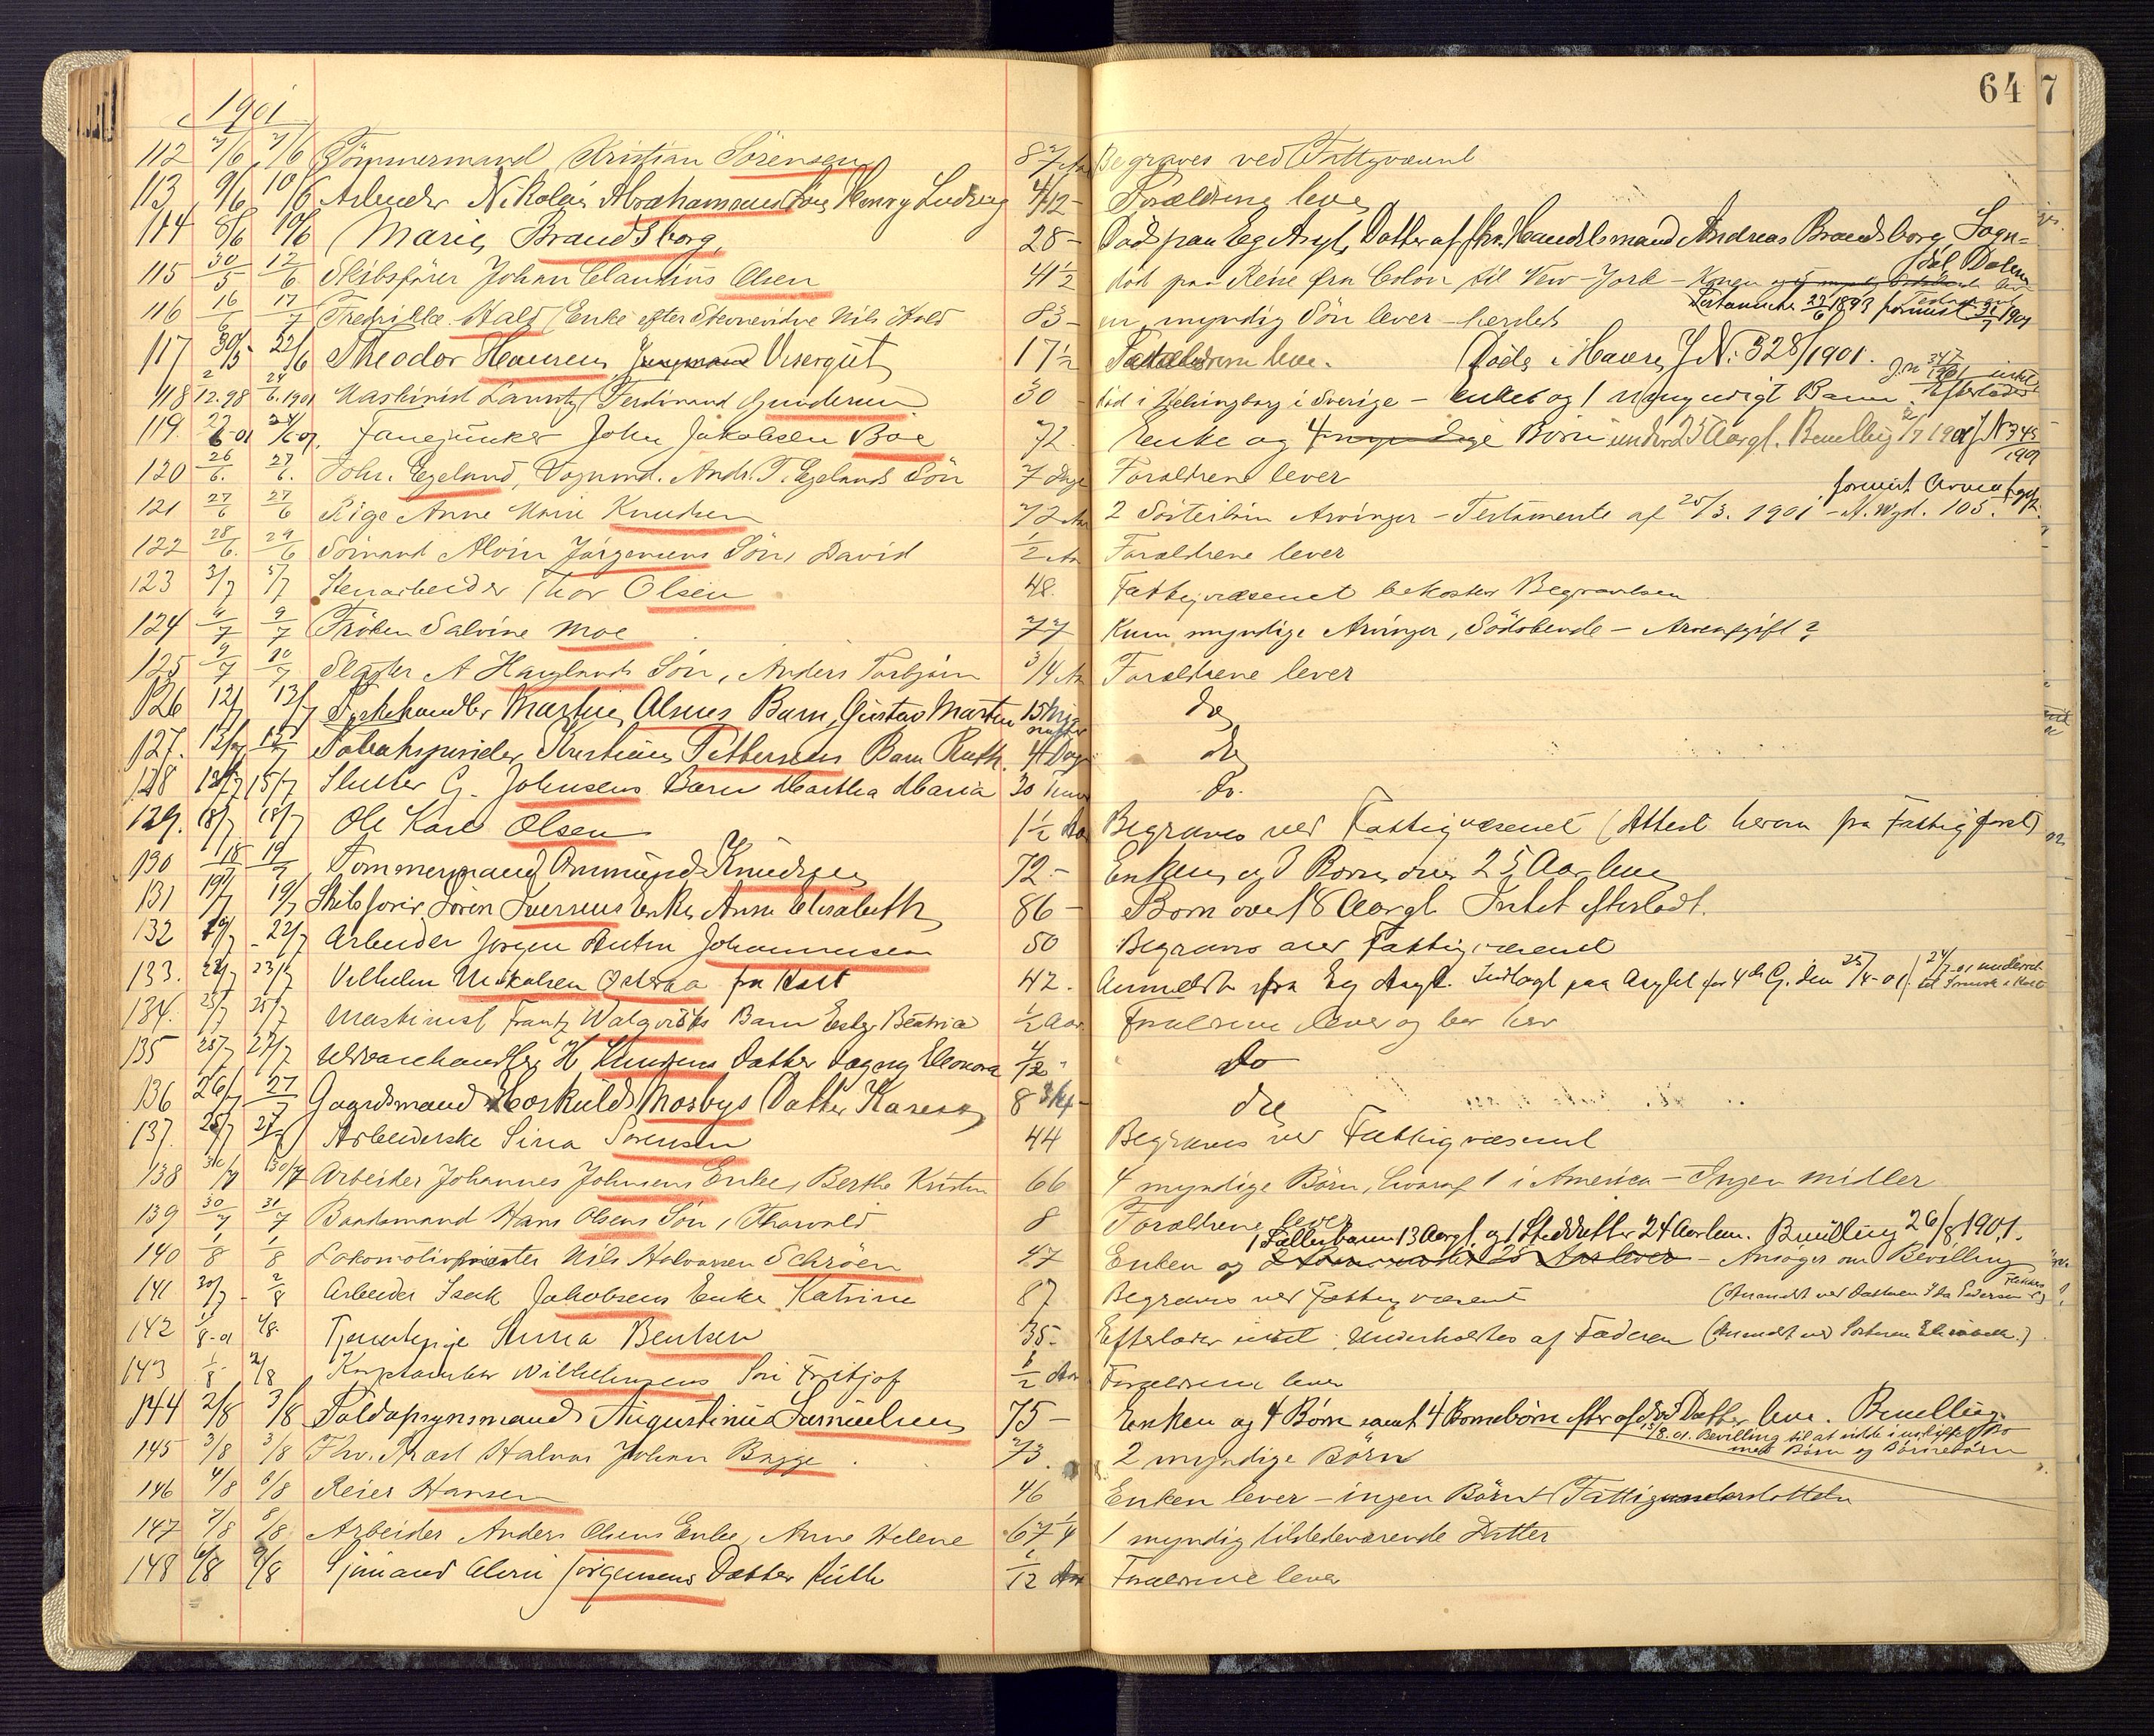 64 7
1901
112 7/6 7/6 Tömmermand Kristian Sörensen 87 Aar Begraves ved Fattigvæsenet
113 9/6 10/6 Arbeider Nikolai Abrahamsens Søn Henry Ludvig 4/12 - Forældrene lever
114 8/6 10/6 Marie Brandsborg 28 - Død paa Eg Asyl, Datter af Handelsmand Andreas Brandsborg, Sogn-
dal Dalene
115 30/5 12/6 Skibsfører Johan Claudius Olsen 41 1/2 död paa Reise fra Colon til New-York - Konen og
116 16/6 17/7 Fredrikke Hald Enke efter Nils Hald 83 - en myndig Sön lever - herdets Testament 1893 31/7 1901
117 30/5 22/6 Theodor Hansen Visergut 17 1/2 Forældrene lever. Døde i Havre J.N. 328/1901.
118 2/12.98 24/6.1901 Maskinist Lauritz Ferdinand Gundersen 30 död i Helsingborg i Sverige - Enke og 1 umyndigt Barn. Efterlader intet
119. 22/6-01 24/6 01. Fanejunker John Jakobsen Boe 72. Enke og 4 Börn under 25 Aar gl. Bevilling 2/7 1901 J N 345
1901
120 26/6. 27/6. Johs. Egeland, Vognmd. Andr. T. Egelands Sön 7 Dage Forældrene lever
121 27/6 27/6 Pige Anne Marie Knudsen 72 Aar 2 Søsterbörn Arvinger - Testamente af 25/3. 1901
122 28/6. 29/6 Sömand Alvin Jörgensens Sön, David 1/2 Aar Forældrene lever
123 3/7 5/7 Stenarbeider Thor Olsen 48. Fattigvæsenet bekoster Begravelsen
124 4/7 9/7 Fröken Salvine Moe 77 Kun myndige Arvinger, Södskende - Arveafgift?
125 9/7 10/7 Slagter A Hauglands Sön, Anders Torbjörn 3/4 Aar Forældrene lever
126 12/7 13/7 Fiskehandler Martin Olsens Barn, Gustav Martin 15 Minutter do
127. 12/7 15/7 Tobakspinder Kristian Pettersens Barn Ruth. 4 Dage do
128 12/7 15/7 Slutter G. Johnsens Barn Martha Maria 30 Timer do.
129. 18/7 18/7 Ole Karl Olsen 1 1/2 Aar Begraves ved Fattigvæsenet (Attest herom fra Fattigforst)
130 18/7 19/7 Tømmermand Ommund Knudsen 72 - Enken og 3 Børn over 25 Aar lever
131 19/7 19/7 Skibsfører Søren Iversens Enke Anne Elisabeth 86 - Børn over 18 Aar gl. Intet efterladt.
132 19/7 - 22/7 Arbeider Jørgen Anton Johannessen 50 Begraves av Fattigvæsenet
133. 22/7 23/7 Vilhelm Mikalsen Osteraa fra Holt 42. Anmeldt fra Eg Asyl. Indlagt paa Asylet for 4de G. den 25/4-01
134. 25/7 25/7 Maskinist Frantz Walqvists Barn Esby Beatrice 1/2 Aar Forældrene lever og bor her
135 25/7 27/7 Uldvarehandler H. Knudsens Datter Dagny Eleonora 4/12 - do
136 26/7 27/7 Gaardsmand Hoskuld Mosbys Datter Karen 8 3/4 - do
137. 25/7 27/7 Arbeiderske Sina Sørensen 44 Begraves ved Fattigvæsenet
138 30/7 30/7 Arbeider Johannes Johnsens Enke, Berthe Kristine 66 4 myndige Börn, hvoraf 1 i Amerika - Ingen midler
139 30/7 31/7 Baadsmand Hans Olsens Sön, Thorvald 8 Forældrene lever
1 Fællesbarn 13 Aar gl. og 1 Steddatter 24 Aar lever. Bevilling 26/8 1901.
140 1/8 1/8 Lokomotivmester Nils Halvorsen Schröen 47 Enken og 2 Börn under 25 Aar lever - Ansöger om Bevilling
141 30/7 - 2/8 Arbeider Isak Jakobsens Enke Katrine 87 Begraves ved Fattigvæsenet (Anmeldt ved Datteren Ida Pedersen)
142 1/8-01 /8. Tjenestepige Anna Bentsen 35 - Efterlader intet. Underholdtes af Faderen (Anmeldt ved Søsteren Elisabeth.)
143 1/8 2/8 Wilhelmsens Søn Fritjof 1/2 Aar Forældrene lever
144 2/8 3/8 Toldopsynsmand Augustinus Samuelsen 75 - Enken og 4 Børn samt 4 Børnebørn efter afdød Datter lever. Bevilling
13/8.01. Bevilling til at sidde i uskiftet Bo
med Börn og Börnebörn
145 3/8 3/8 Fhv. Halvor Johan Bugge 73. 2 myndige Börn
146 4/8 6/8 Reier Hansen 46 Enken lever - ingen Börn
147 7/8 8/8 Arbeider Anders Olsens Enke, Anne Helene 67 1/4 1 myndig tilstedeværende Datter
148 6/8 9/8 Sjømand Alvin Jørgensens Datter Ruth 1/12 Aar Forældrene lever